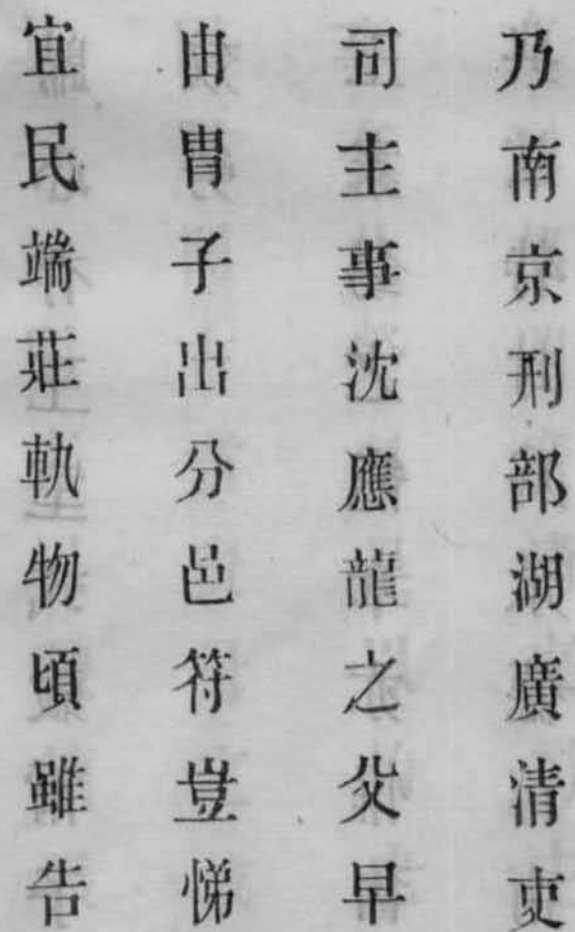 乃南京刑部湖廣清吏
司主事沈應龍之父早
由胄子出分邑符豈悌
宜民端莊軌物頃雖告